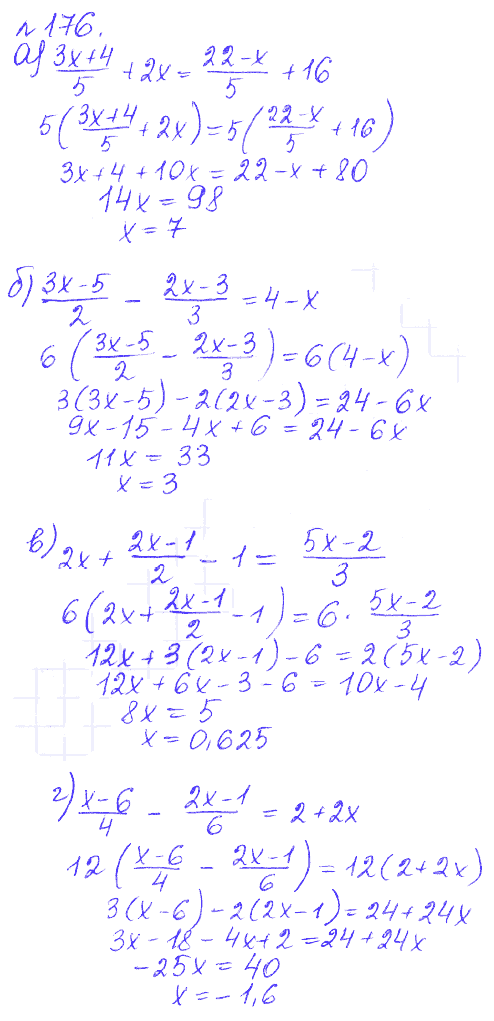 № 176.
а) (3x+4)/5 + 2x = (22-x)/5 + 16
5((3x+4)/5 + 2x) = 5((22-x)/5 + 16)
3x+4+10x = 22-x+80
14x = 98
x = 7
б) (3x-5)/2 - (2x-3)/3 = 4-x
6((3x-5)/2 - (2x-3)/3) = 6(4-x)
3(3x-5) - 2(2x-3) = 24-6x
9x-15-4x+6 = 24-6x
11x = 33
x = 3
в) 2x + (2x-1)/2 - 1 = (5x-2)/3
6(2x + (2x-1)/2 - 1) = 6 · (5x-2)/3
12x+3(2x-1)-6 = 2(5x-2)
12x+6x-3-6 = 10x-4
8x = 5
x = 0,625
г) (x-6)/4 - (2x-1)/6 = 2+2x
12((x-6)/4 - (2x-1)/6) = 12(2+2x)
3(x-6) - 2(2x-1) = 24+24x
3x-18-4x+2 = 24+24x
-25x = 40
x = -1,6